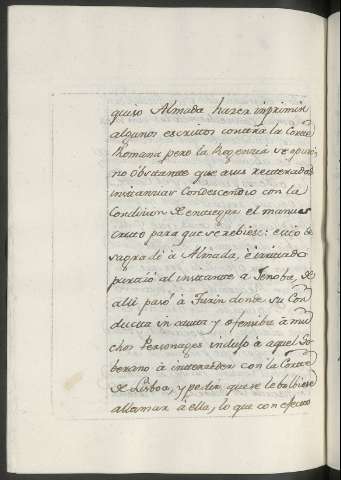 quiso Almada hazer inprimir
algunos escritos contra la Corte
Romana pero la Regencia se opuso,
no obstante que a sus reiteradas
instancias Condescendio con la
Condicion de entregar el manus
crito para que se rebiese: esto de
sagradó à Almada, è irritado
partió al instante a Jenoba, de
alli pasó à Turin donde su Con
ducta incauta y ofensiba à mu
chos Personages indujo à aquel So
berano à interceder con la Corte
de Lisboa, y pedir que se le bolbiese
allamar à ella, lo que con efecto